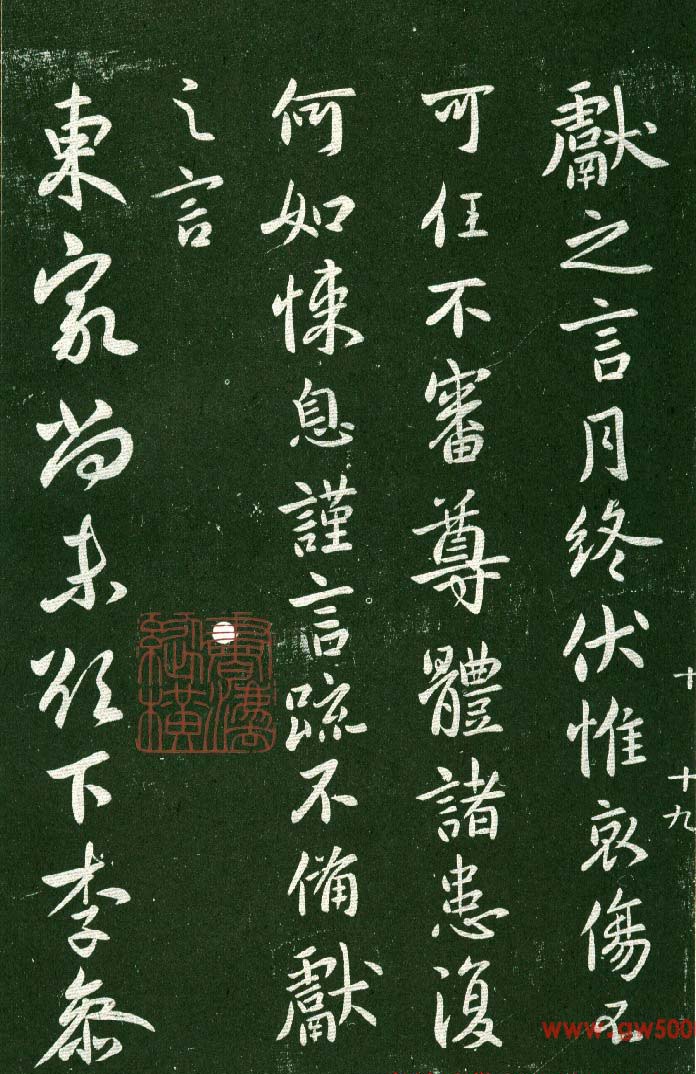 十
十九
獻之言月終伏惟哀傷不
可任不審尊體諸患復
何如悚息謹言疏不備獻
之言
東家尚未欲下李參
書灋
縱橫
www.gw500